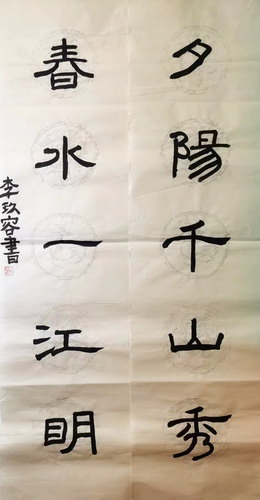 夕陽千山秀
春水一江明
李玖容書